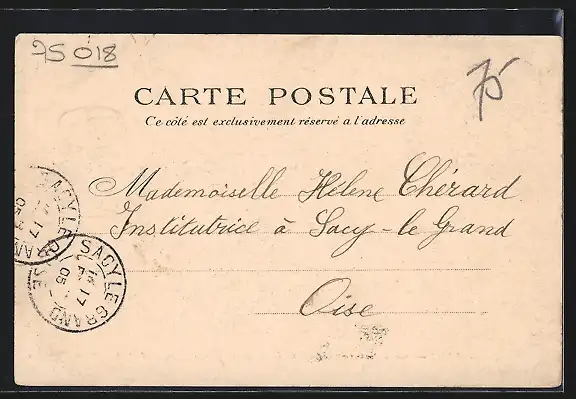 75 018
75
CARTE POSTALE
Ce côté est exclusivement réservé a l'adresse
Mademoiselle Hélene Chérard
Institutrice à Sacy-le Grand
Oise
SACY LE GRAND
17
05
SACY LE GRAND
17
05